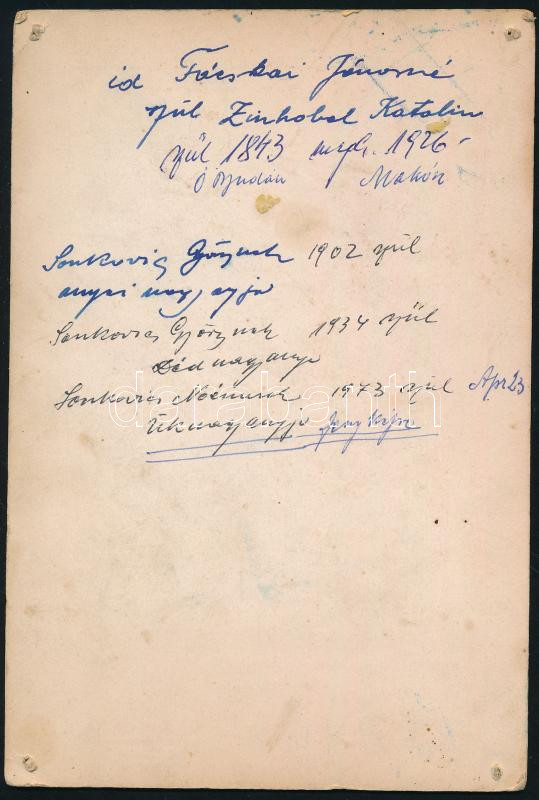 id Fácskai Jánosné
szül Zinhobel Katalin
szül 1843 megh. 1926
Ó Budán Makón
Sonkovics Győzőnek 1902 szül
anyai nagyanyja
Sonkovics Győzőnek 1934 szül
Déd nagyanyja
Sonkovics Noéminek 1973 szül Apr 23
Üknagyanyja
darabanth